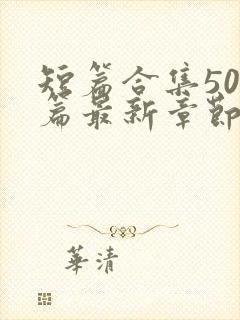 短篇合集50
篇最新章節
華清